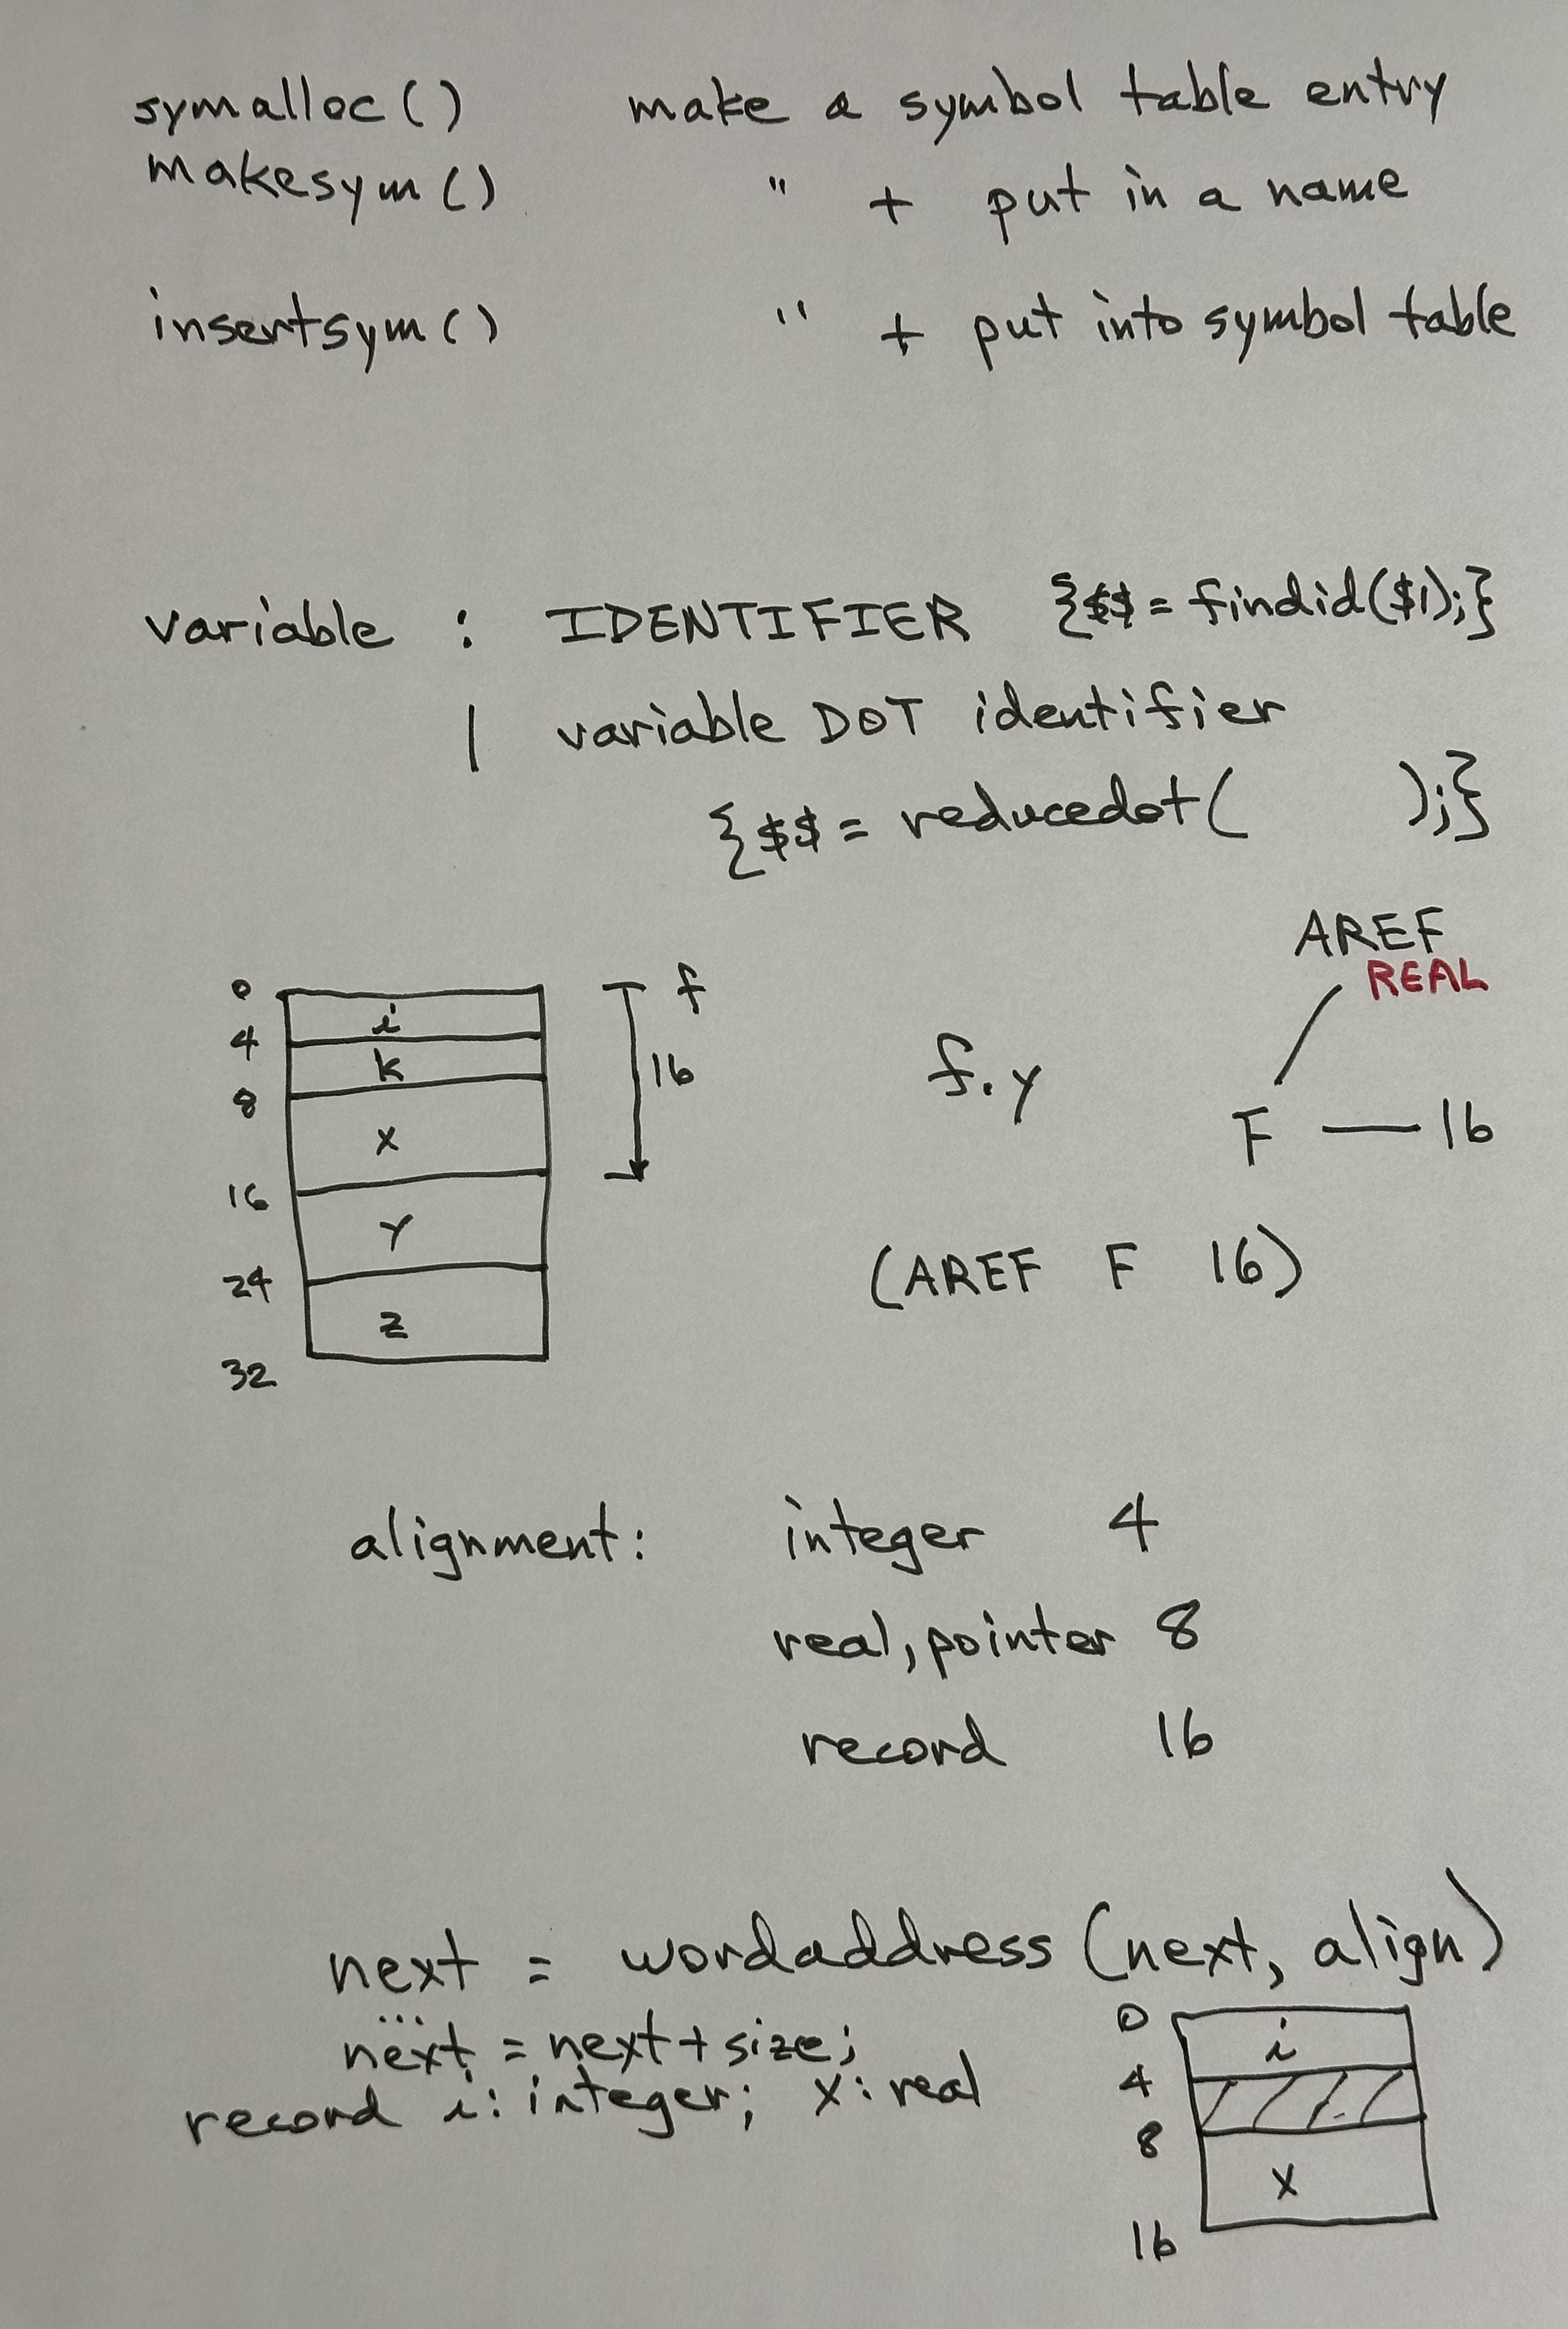 symalloc() make a symbol table entry
makesym() " + put in a name
insertsym() " + put into symbol table
variable : IDENTIFIER {$$ = findid($1);}
| variable DOT identifier
{$$ = reducedot( );}
AREF
REAL
F — 16
0
i
4
k
8
x
16
y
24
z
32
f
16
f.y
(AREF F 16)
alignment: integer 4
real, pointer 8
record 16
next = wordaddress (next, align)
...
next = next + size;
record i: integer; x: real
0
i
4
8
x
16